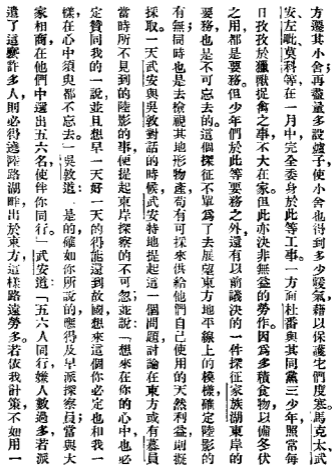 方遷其小舍再盡量多設爐子使小舍也得到多少暖氣藉以保護它們度塞馬克太武
安左毗莫科等在一月中完全委身於此等工事一方向杜番與其同黨三少年照常每
日孜孜於獵獸捉禽之事不大在家但此亦決非無益的勞作因爲多積食物以備冬伏
之用都是要務但少年們於此等要務之外還有以前議決的一件探征家族湖東岸的
要務也是不可忘去的這個探征不單爲了去展望東方地平線上的模樣確定陸影的
有無同時也是去檢視其地形物產苟有可採來供給他們自己使用的天然利益可擬
採取一天武安與吳敦對話的時候武安特地提起這一個問題討論在東方或有募員
當時所不見到的陸影的事便提起東岸探察的不可忽並說「想來在你的心中也必
定贊同我的一說並且想早一天好一天的得能還到故國想來這個你必定也和我一
樣在心中須臾都不忘去」吳敦道「是的確如你所說的應得及早派探察員當與大
家相商在他們中選出五六名使伴你同行」武安道「五六人同行嫌人數過多若派
遣了這麽許多人則必得遶陸路湖畔出於東方這樣路遠勞多若依我計策不如用一